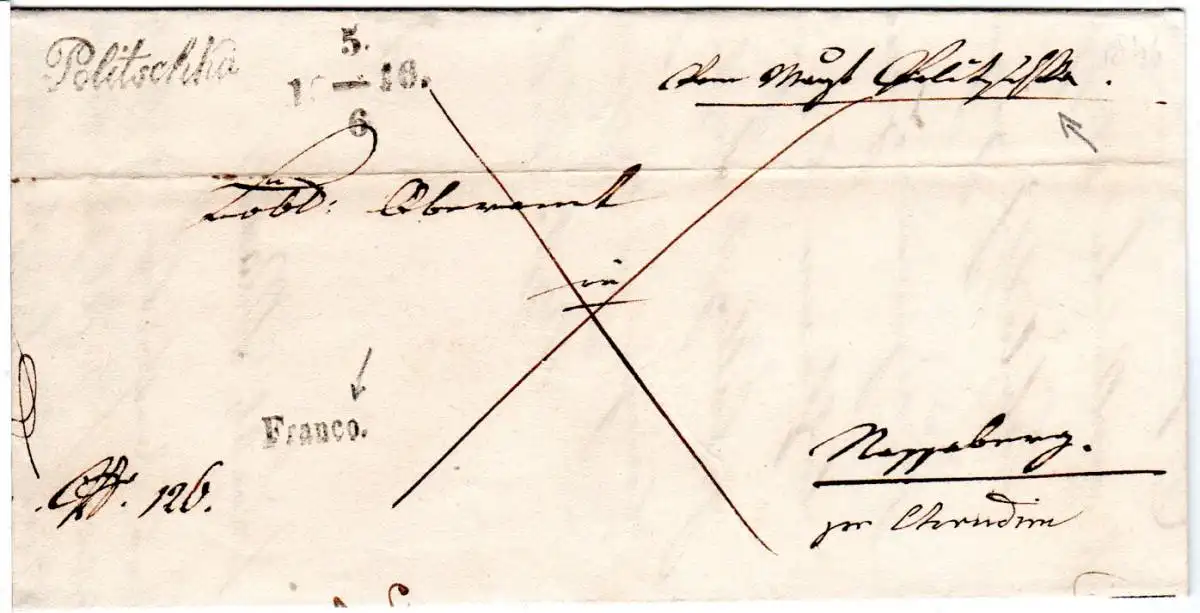 Politschka
5.
18 — 16.
6
Vom Magt Politschka.
Löbl: Oberamt
in
Franco.
Nassaberg.
per Chrudim
Off. 126.